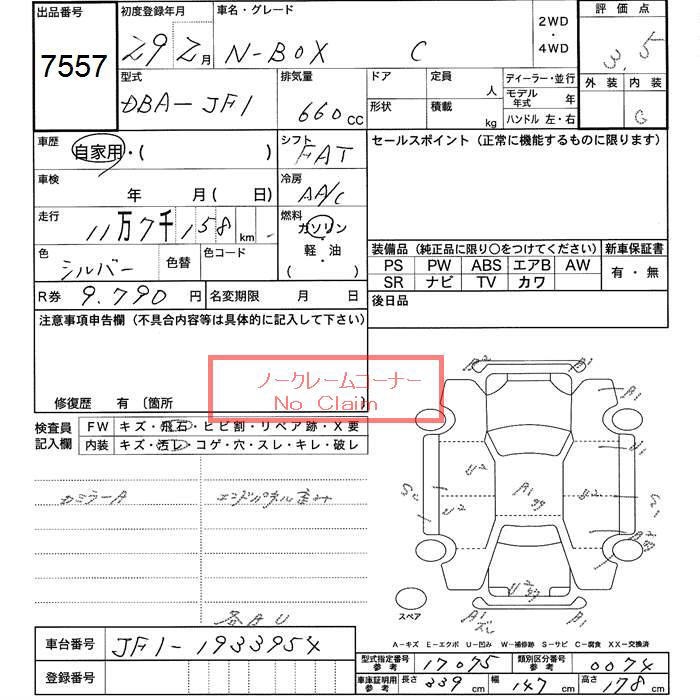 出品番号
7557
初度登録年月
29 2月
車名・グレード
N-BOX C
2WD
・
4WD
評価点
3.5
外装 内装
C
型式
DBA-JF1
排気量
660 CC
ドア
形状
定員 人
積載 kg
ディーラー・並行
モデル年式 年
ハンドル 左・右
車歴
自家用・( )
シフト
FAT
車検
年 月( 日)
冷房
AA/C
走行
11万7千158 km
燃料
ガソリン
・
軽・油
( ・ )
色
シルバー
色替
色コード
R券 9.790 円
名変期限 月 日
セールスポイント(正常に機能するものに限ります)
装備品(純正品に限り○をつけてください)
PS PW ABS エアB AW
SR ナビ TV カワ
新車保証書
有・無
後日品
注意事項申告欄(不具合内容等は具体的に記入して下さい)
ノークレームコーナー
No Claim
修復歴 有〔箇所
検査員
記入欄
FW キズ・飛石・ヒビ割・リペア跡・X要
内装 キズ・汚レ・コゲ・穴・スレ・キレ・破レ
カミラーA
エンドパネル歪み
各AU
スペア
A-キズ E-エクボ U-凹み W-補修跡 S-サビ C-腐食 XX-交換済
車台番号 JF1-1933954
登録番号
型式指定番号 参考 17075
類別区分番号 参考 0074
車庫証明用 参考 長さ 339 cm 幅 147 cm 高さ 178 cm